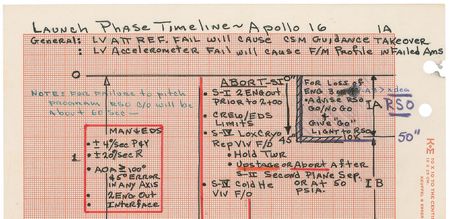 Launch Phase Timeline ~ Apollo 16 1A
General: LV ATT REF. FAIL will cause CSM Guidance Takeover
: LV Accelerometer Fail will cause F/M Profile in Failed Axis
0
NOTE: For failure to pitch
program RSO C/O will be
about 60 sec —
1
MAN & EDS
• ± 4°/sec P&Y
• ± 20°/sec R
• AOA ≥ 100%
45° ERROR
IN ANY AXIS
• 2 ENG OUT
• INTERFACE
ABORT-SI
• S-I 2 ENG OUT
PRIOR TO 2+00
• CREW/EDS
LIMITS
• S-IV LOX CRYO
REP VIV F/D
• HOLD TWR
• UPSTAGE OR ABORT AFTER
S-II SECOND PLANE SEP.
• S-IV COLD HE OR AT 50
VIV F/D PSIA.
0"
45
FOR LOSS OF
ENG B
• ADVISE RSO
GO/NO GO
&
"GIVE GO"
LIGHT TO RSO
IA
RSO
50"
IB
K+E